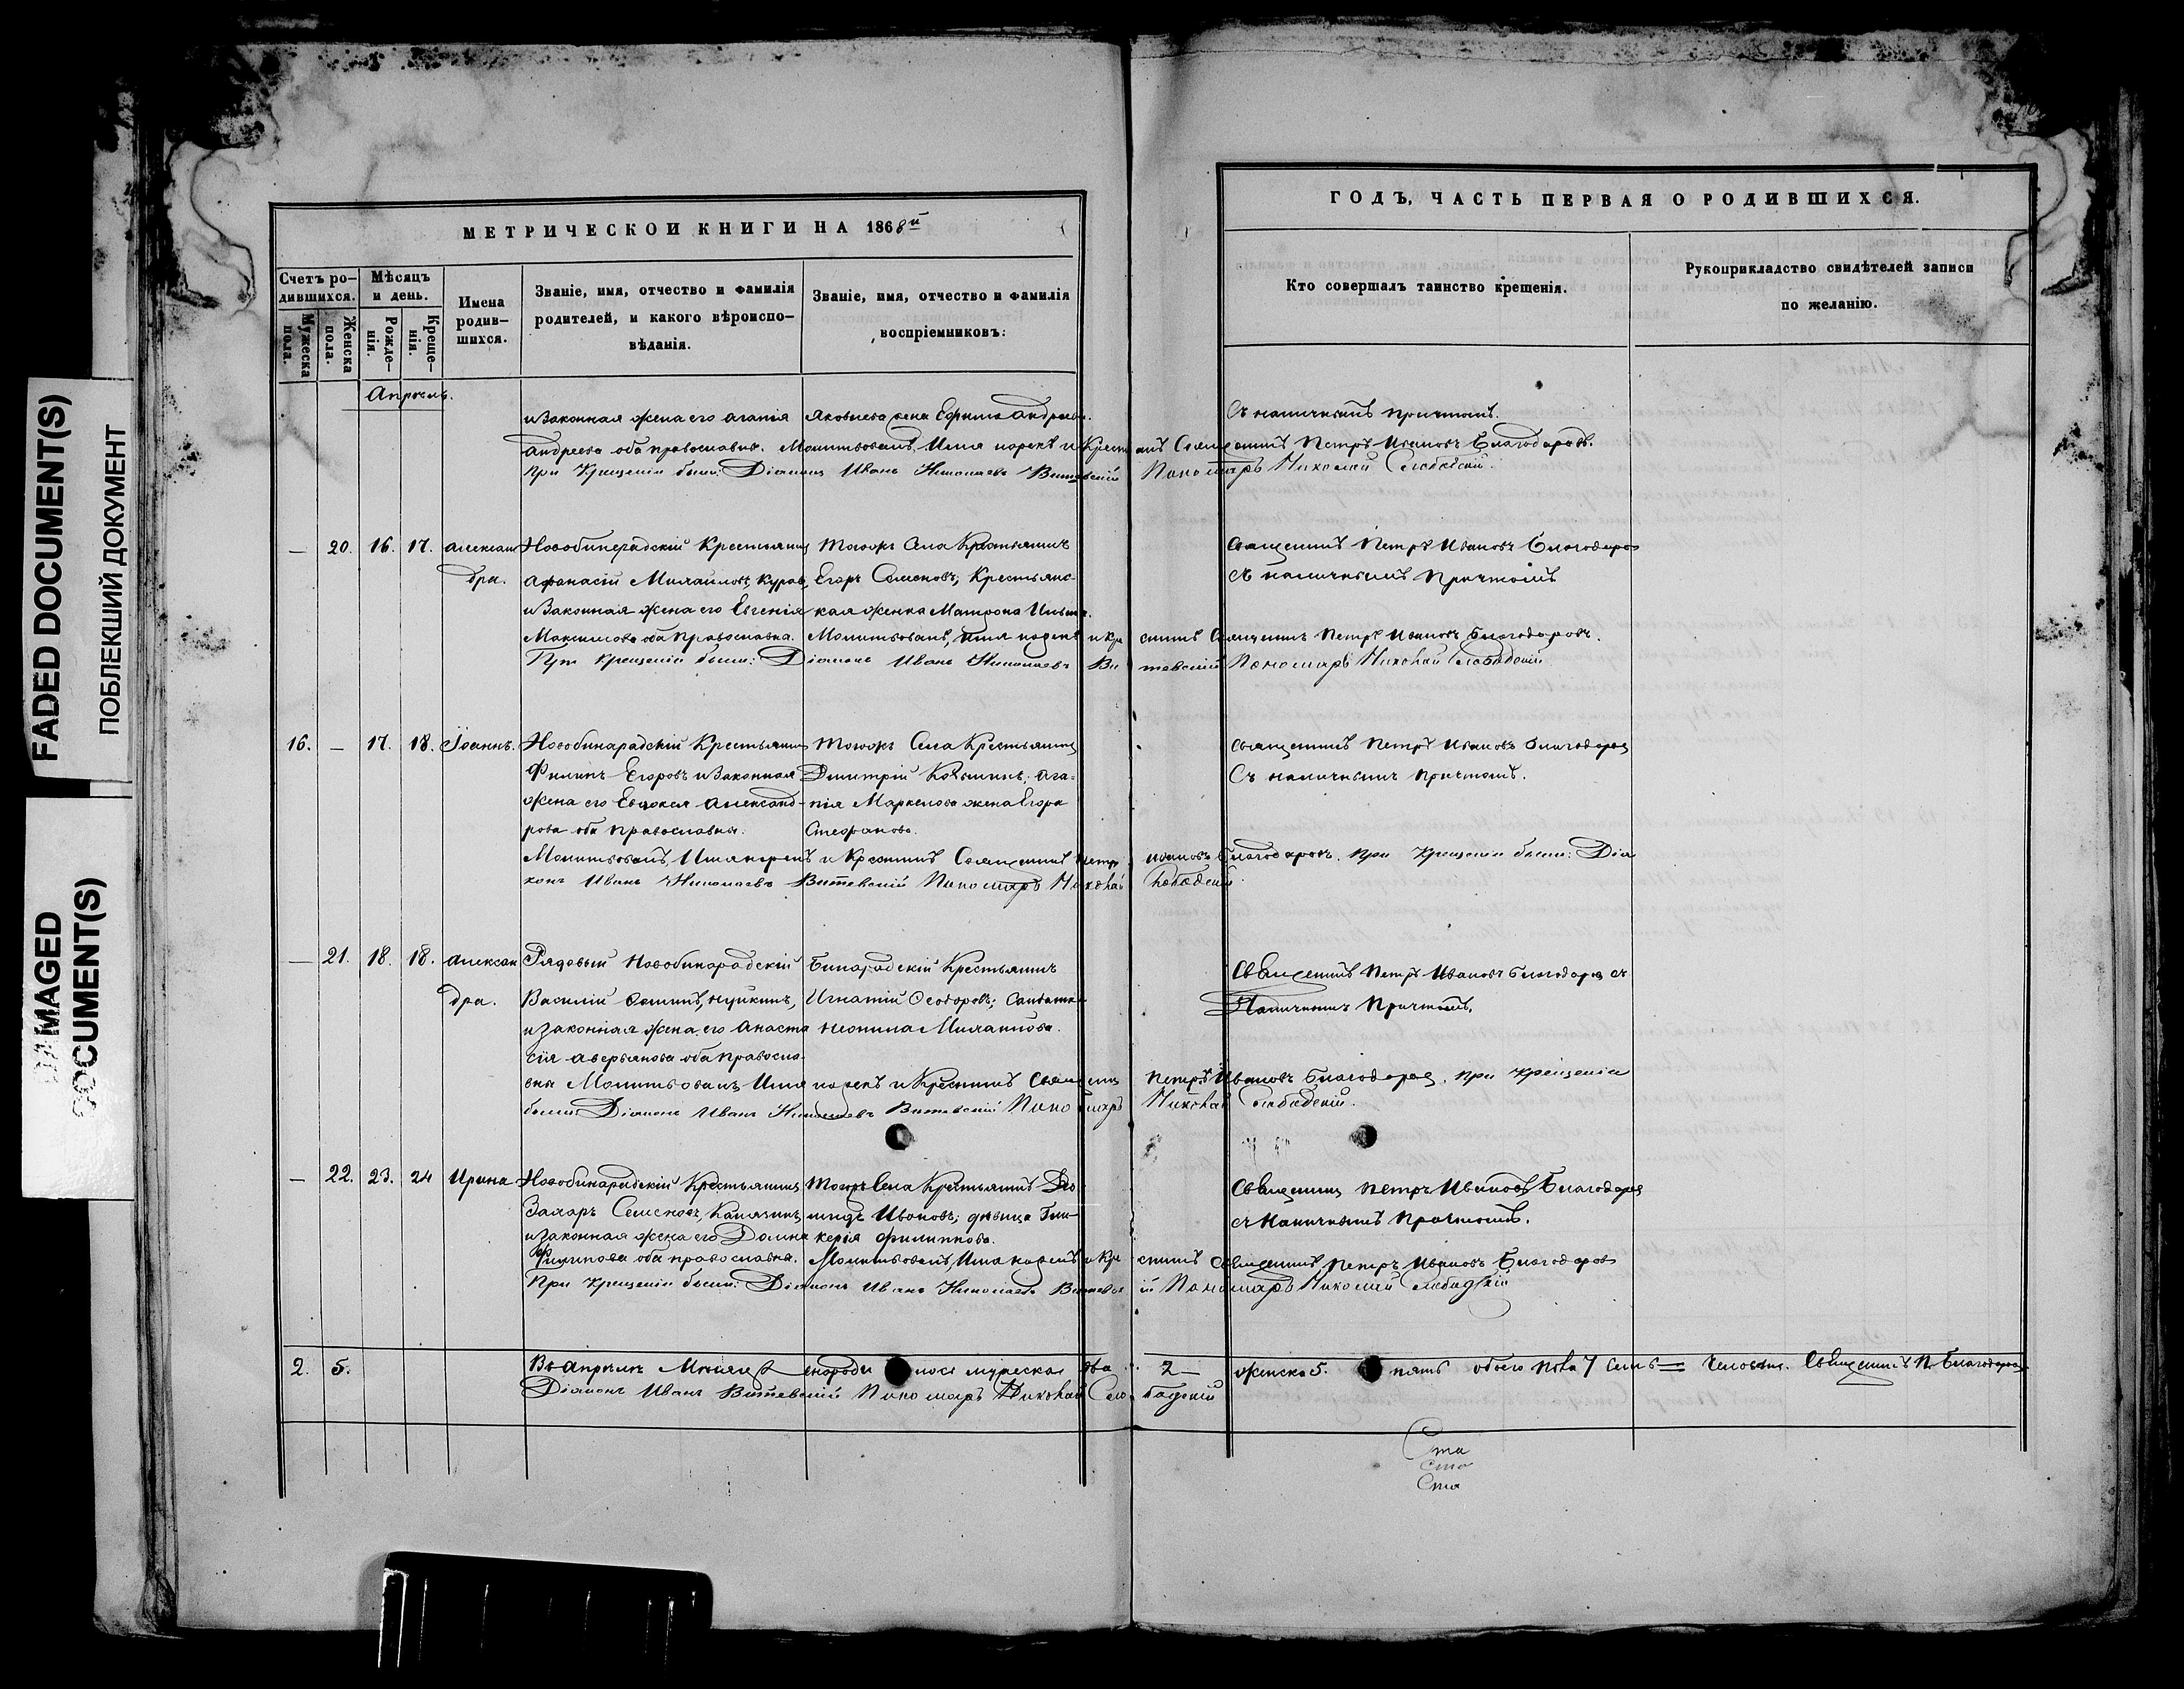 FADED DOCUMENT(S)
ПОБЛЕКШИЙ ДОКУМЕНТ
DAMAGED
DOCUMENT(S)
МЕТРИЧЕСКОЙ КНИГИ НА 1868й
Счетъ ро-
дившихся.
Мужеска
пола.
Женска
пола.
Мѣсяцъ
и день.
Рожде-
нія.
Креще-
нія.
Имена
родив-
шихся.
Званіе, имя, отчество и фамилія
родителей, и какого вѣроиспо-
вѣданія.
Званіе, имя, отчество и фамилія
воспріемниковъ:
ГОДЪ, ЧАСТЬ ПЕРВАЯ О РОДИВШИХСЯ.
Кто совершалъ таинство крещенія.
Рукоприкладство свидѣтелей записи
по желанію.
Апрель.
и Законная жена его Агапія Яковлева жена Ефима Андреева. Съ наличнымъ причтомъ.
Андреева оба православные. Молитвовалъ, Имя нарекъ и Крестилъ Священникъ Петръ Ивановъ Благодаровъ.
При Крещеніи были: Діаконъ Иванъ Николаевъ Витевскій Пономарь Николай Слободскій.
— 20. 16. 17. Александра. Новобинарадскій Крестьянинъ Тогожъ Села Крестьянинъ Священникъ Петръ Ивановъ Благодаровъ
Афанасій Михайловъ, Егоръ Семеновъ; Крестьянс- съ наличнымъ Причтомъ
и Законная жена его Евгенія кая женка Матрона
Максимова оба Православна. Молитвовалъ, Имя нарекъ и крестилъ Священникъ Петръ Ивановъ Благодаровъ.
При крещеніи были: Діаконъ Иванъ Николаевъ Витевскій Пономарь Николай Слободскій
16. — 17. 18. Іоаннъ. Новобинарадскій Крестьянинъ Тогожъ Села Крестьянинъ Священникъ Петръ Ивановъ Благодаровъ
Филипъ Егоровъ и Законная Дмитрій Козьминъ; Ага- Съ наличнымъ причтомъ.
жена его Евдокія Александ- пія Маркелова жена Егора
рова оба православны. Стефанова.
Молитвовалъ, Имя нарекъ и Крестилъ Священникъ Петръ Ивановъ Благодаровъ. При Крещеніи были: Діа
конъ Иванъ Николаевъ Витевскій Пономарь Николай Слободскій.
— 21. 18. 18. Александра. Рядовый Новобинарадскій Бинарадскій Крестьянинъ Священникъ Петръ Ивановъ Благодаровъ съ
Василій Игнатій Ѳеодоровъ; Солдатка Наличнымъ Причтомъ.
и Законная жена его Анаста Неонила Михайлова.
сія Аверьянова оба правосла-
вны Молитвовалъ Имя нарекъ и Крестилъ Священникъ Петръ Ивановъ Благодаровъ. При Крещеніи
были: Діаконъ Иванъ Николаевъ Витевскій Пономарь Николай Слободскій.
— 22. 23. 24 Ирина Новобинарадскій Крестьянинъ Тогожъ Села Крестьянинъ Священникъ Петръ Ивановъ Благодаровъ
Захаръ Семеновъ, Калязинъ Ивановъ; дѣвица Гли- съ Наличнымъ Причтомъ.
и законная жена его Домна керія Филиппова.
Филипова оба православна. Молитвовалъ, Имя нарекъ и Крестилъ Священникъ Петръ Ивановъ Благодаровъ
При Крещеніи были: Діаконъ Иванъ Николаевъ Витевскій Пономарь Николай Слободскій
2. 5. Въ Апрелѣ Мѣсяцѣ родилось мужеска два 2 — женска 5. пять обоего пола 7 семь — человѣкъ. Священникъ П. Благодаровъ
Діаконъ Иванъ Витевскій Пономарь Николай Слободскій